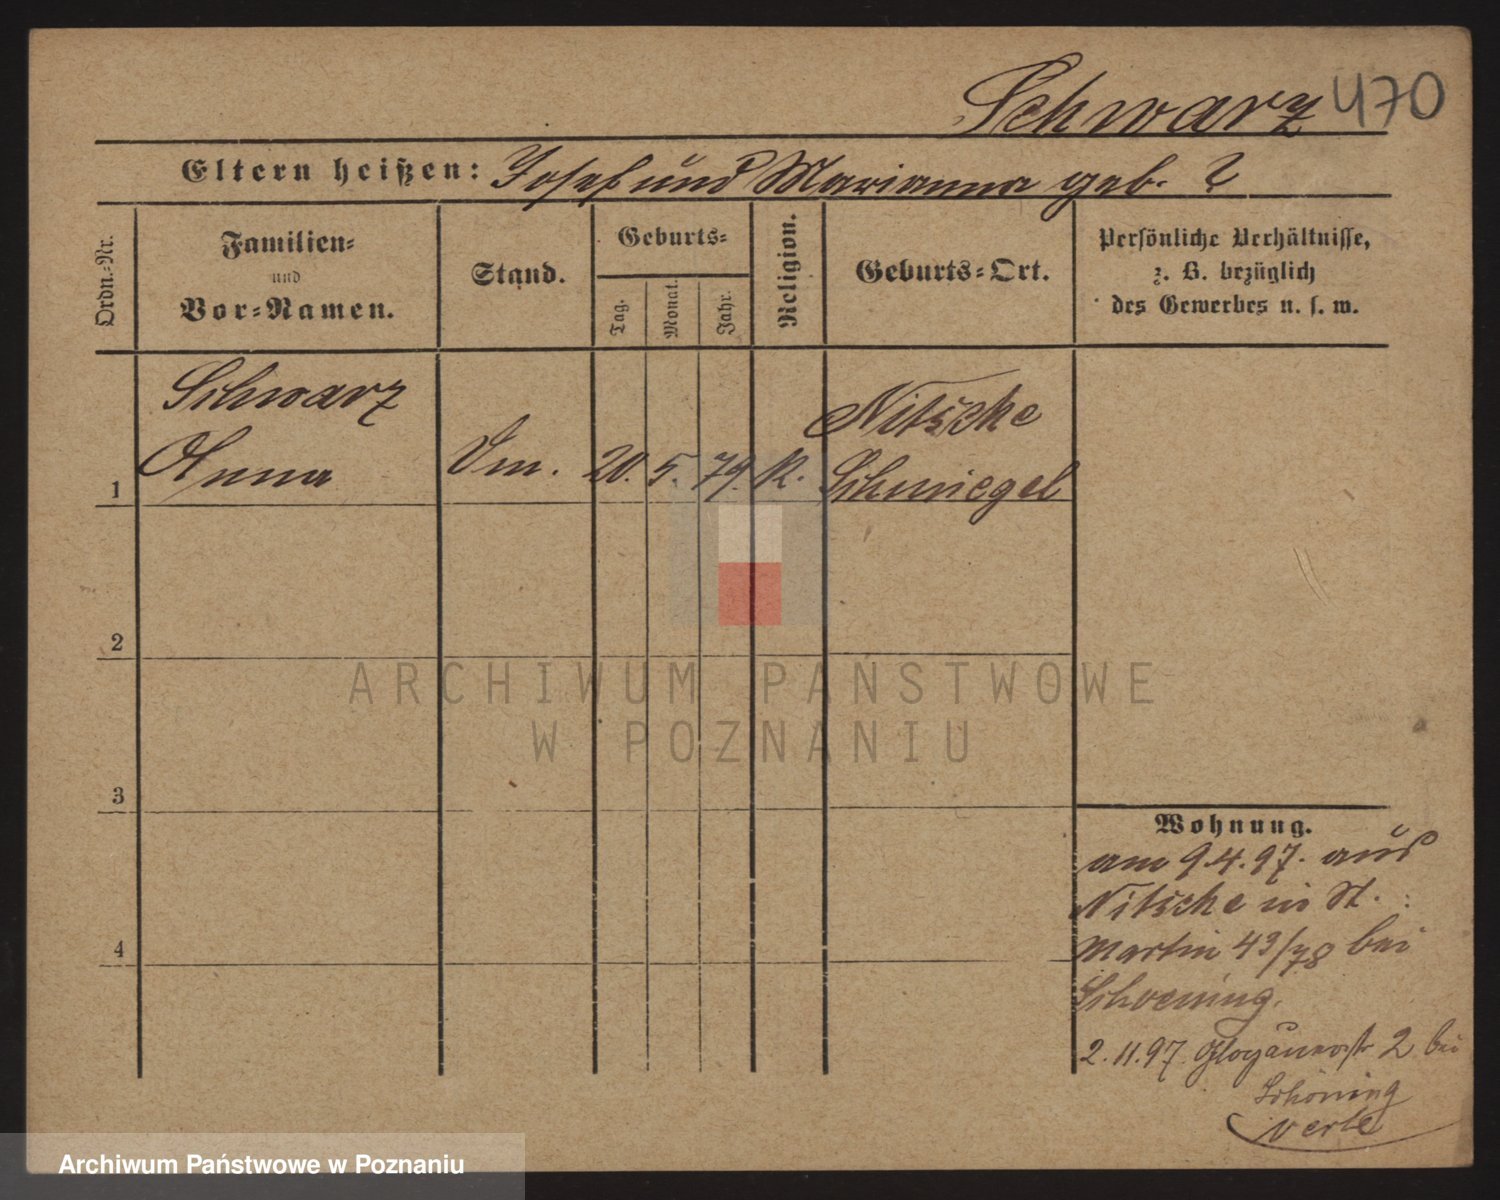 Schwarz 470
Eltern heißen: Josef und Marianna geb. ?
Ordn.-Nr.
Familien-
und
Vor-Namen.
Stand.
Geburts-
Tag.
Monat.
Jahr.
Religion.
Geburts-Ort.
Persönliche Verhältnisse,
z. B. bezüglich
des Gewerbes u. s. w.
Schwarz
Nitsche
1 Anna Dm. 20. 5. 79. K. Schmiegel
2
3
4
Wohnung.
am 9.4.97. aus
Nitsche in St.
Martin 43/78 bei
Schoening.
2.11.97. Glogauerstr. 2 bei
Schöning
ARCHIWUM PAŃSTWOWE
W POZNANIU
Archiwum Państwowe w Poznaniu